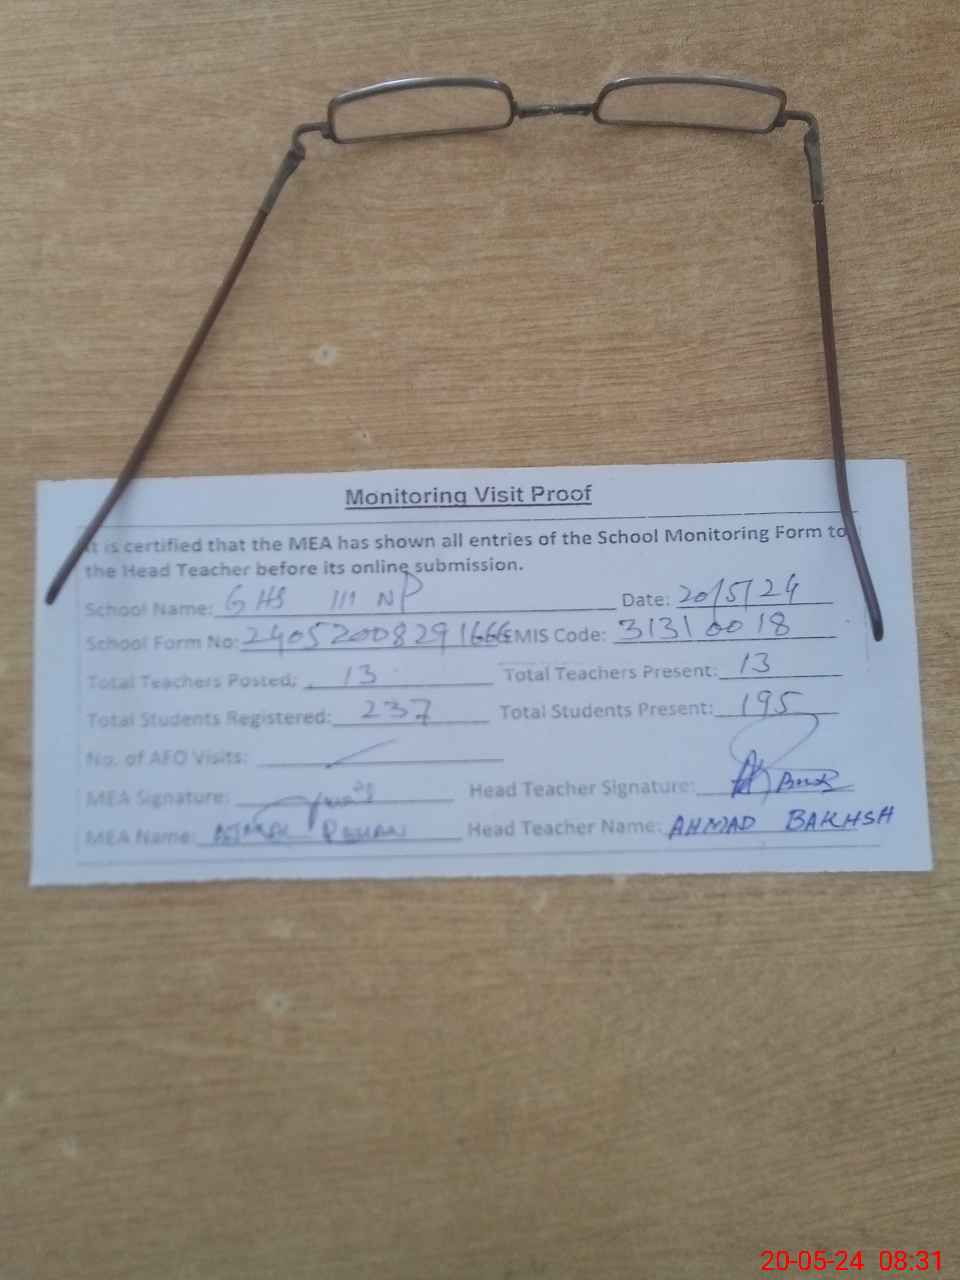 Monitoring Visit Proof
It is certified that the MEA has shown all entries of the School Monitoring Form to
the Head Teacher before its online submission.
School Name: GHS 111 NP Date: 20/5/24
School Form No: 24052008291666 EMIS Code: 31310018
Total Teachers Posted: 13 Total Teachers Present: 13
Total Students Registered: 237 Total Students Present: 195
No. of AEO Visits:
MEA Signature: Head Teacher Signature:
MEA Name: Head Teacher Name: AHMAD BAKHSH
20-05-24 08:31